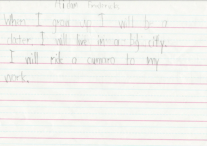 When I grow up I will be a
doctor. I will live in a big city.
I will ride a to my
work.